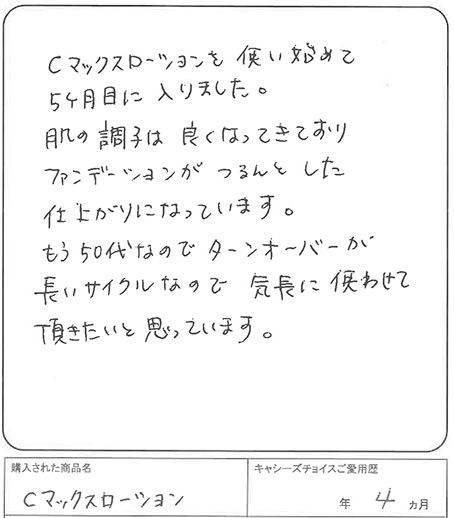 Cマックスローションを使い始めて
5ヶ月目に入りました。
肌の調子は良くなってきており
ファンデーションがつるんとした
仕上がりになっています。
もう50代なのでターンオーバーが
長いサイクルなので気長に使わせて
頂きたいと思っています。
購入された商品名
Cマックスローション
キャシーズチョイスご愛用歴
年 4 ヵ月